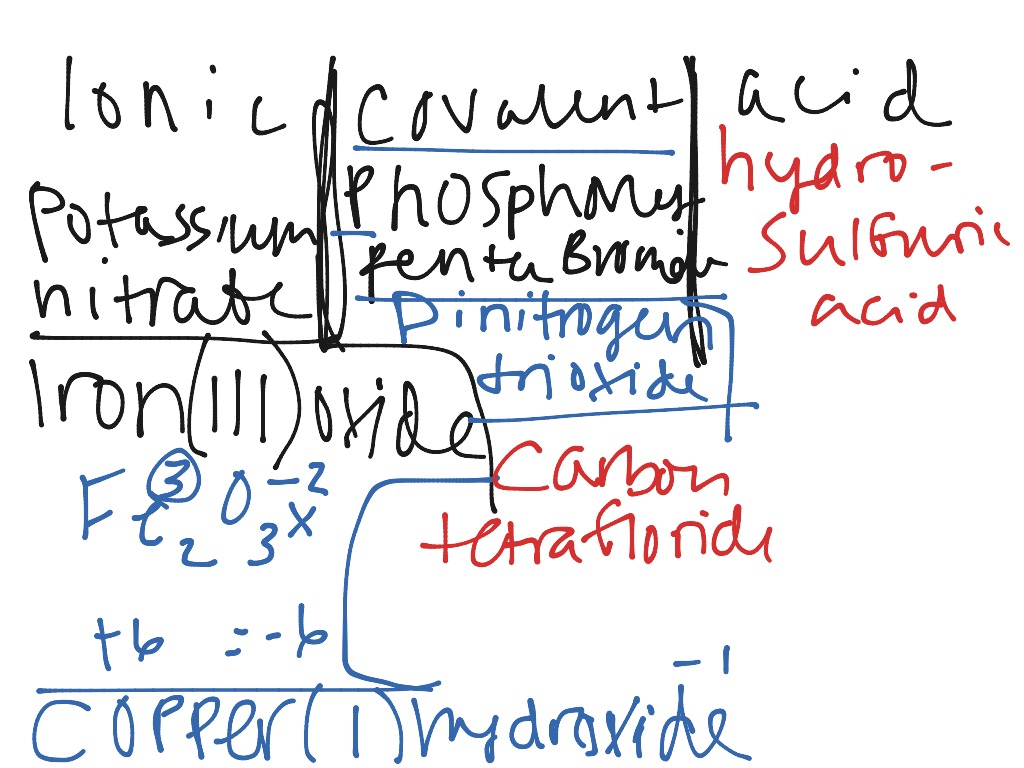 Ionic
covalent
acid
Potassium
nitrate
Iron(III) oxide
Fe 3 2 O -2 3 x
+6 = -6
Phosphorus
penta Bromide
Dinitrogen
trioxide
Carbon
tetrafloride
hydro-
Sulfuric
acid
-1
Copper(I) hydroxide